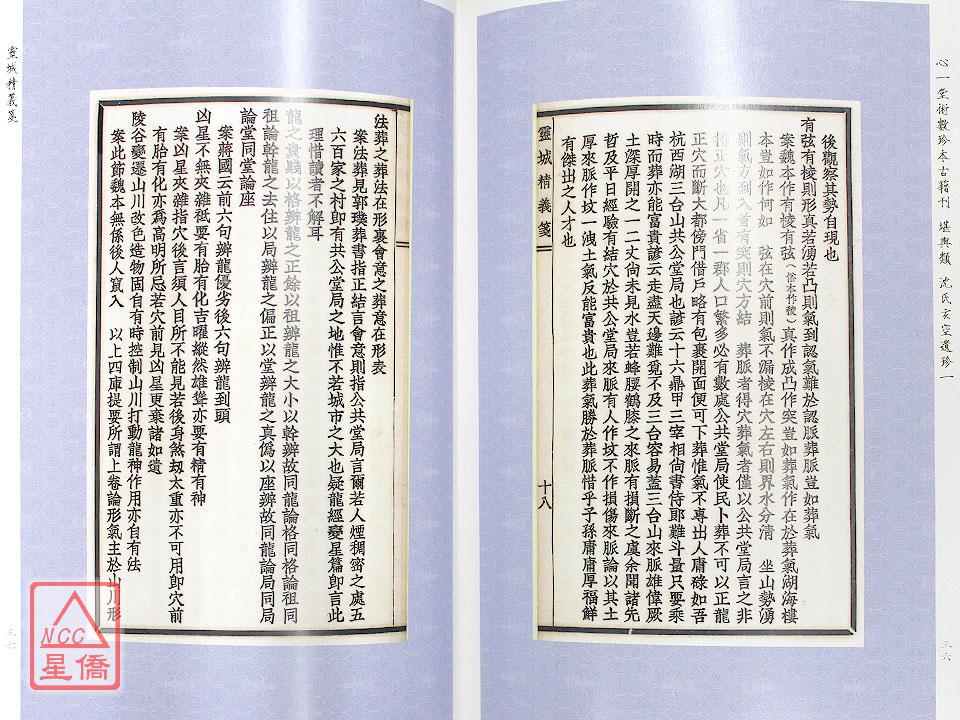 心一堂術數珍本古籍刊　堪輿類　沈氏玄空遺珍一
後觀察其勢自現也
有弦有棱則形真若湧若凸則氣到認氣難於認脈葬脈豈如葬氣
案魏本作有棱有弦(俗本作稜)真作成凸作突豈如葬氣作在於葬氣湖海樓
本豈如作何如　弦在穴前則氣不漏棱在穴左右則界水分清　坐山勢湧
則氣方到入首有突則穴方結　葬脈者得穴葬氣者僅以公共堂局言之非
指正穴也凡一省一郡人口繁多必有數處公共堂局使民卜葬不可以正龍
正穴而斷大都傍門借戶略有包裹開面便可下葬惟氣不專出人庸碌如吾
杭西湖三台山共公堂局也諺云十六鼎甲三宰相尚書侍郎難斗量只要乘
時而葬亦能富貴諺云走盡天邊難覓不及三台容易蓋三台山來脈雄偉厥
土深厚開之一二丈尚未見水豈若蜂腰鶴膝之來脈有損斷之虞余聞諸先
哲及平日經驗有結穴於共公堂局來脈有人作坟不作損傷來脈論以其土
厚來脈作坟一洩土氣反能富貴也此葬氣勝於葬脈惜乎子孫庸庸厚福鮮
有傑出之人才也
靈城精義箋
十八
三六
靈城精義箋
法葬之葬法在形裏會意之葬意在形表
案法葬見郭璞葬書指正結言會意則指公共堂局言爾若人煙稠密之處五
六百家之村卽有共公堂局之地惟不若城市之大也疑龍經變星篇卽言此
理惜讀者不解耳
龍之貴賤以格辨龍之正餘以祖辨龍之大小以幹辨故同龍論格同格論祖同
祖論幹龍之去住以局辨龍之偏正以堂辨龍之真僞以座辨故同龍論局同局
論堂同堂論座
案蔣國云前六句辨龍優劣後六句辨龍到頭
凶星不無夾雜祗要有胎有化吉曜縱然雄聳亦要有精有神
案凶星夾雜指穴後言須人目所不能見若後身煞刼太重亦不可用卽穴前
有胎有化亦爲高明所忌若穴前見凶星更棄諸如遺
陵谷變遷山川改色造物固自有時控制山川打動龍神作用亦自有法
案此節魏本無係後人竄入　以上四庫提要所謂上卷論形氣主於山川形
三七
NCC
星僑